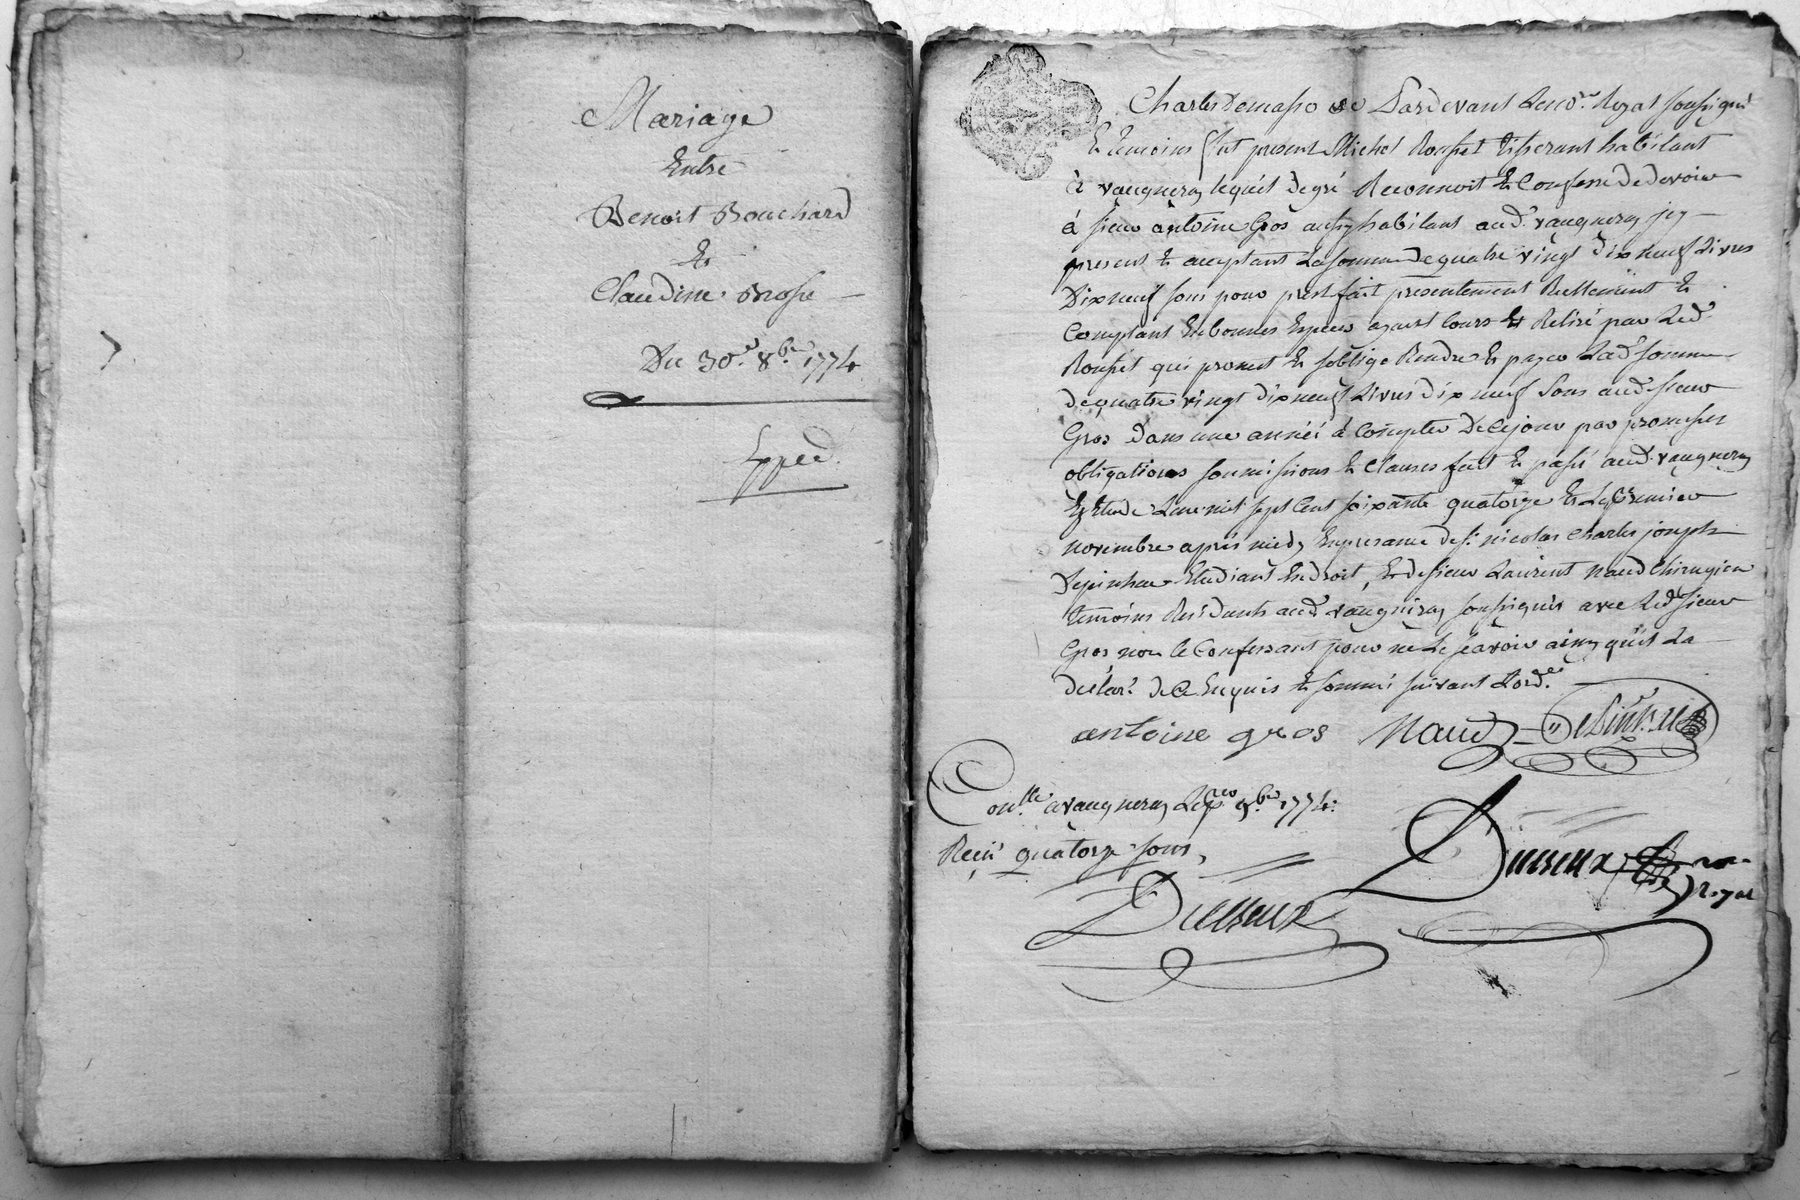 Mariage
Entre
Benoit Bouchard
Et
Claudine Brosse
Du 30e. 8bre 1774
Exped.
Pardevant Le no.re Royal soussigné
Et temoins fut present Michel Rousset tisserant habitant
à vaugneray lequel de gré Reconnoit Et Confesse de devoir
à sieur antoine Gros aussy habitant aud. vaugneray jcy
present Et acceptant La somme de quatre vingt dix neuf Livres
Dix neuf sous pour prest fait presentement Reellement Et
Comptant En bonnes Especes ayant Cours Et Retiré par Led.
Rousset qui promet Et s'oblige Rendre Et payer Lad. somme
de quatre vingt dix neuf Livres dix neuf sous aud. sieur
Gros dans une année à Compter de Ce jour par promesses
obligations soumissions Et Clauses fait Et passé aud. vaugneray
Etude L'an mil sept Cent soixante quatorze Et Le premier
novembre après midy En presance de s.r nicolas Charles joseph
Etudiant En droit, Et de sieur Laurent naud Chirugien
temoins Residants aud. vaugneray soussignés avec Led. sieur
Gros non le Confessant pour ne Le sçavoir ainsy qu'il La
declaré de Ce Enquis Et sommé suivant L'ord.ce
antoine gros Naud
Con.lle a vaugneray Le p.er 9bre 1774.
Reçu quatorze sous,
Royal